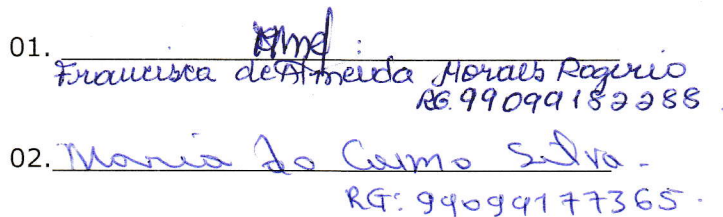 01.
Francisca de Almeida Moraes Rogerio
RG. 99099182288.
02. Maria do Carmo Silva.
RG: 99099177365.